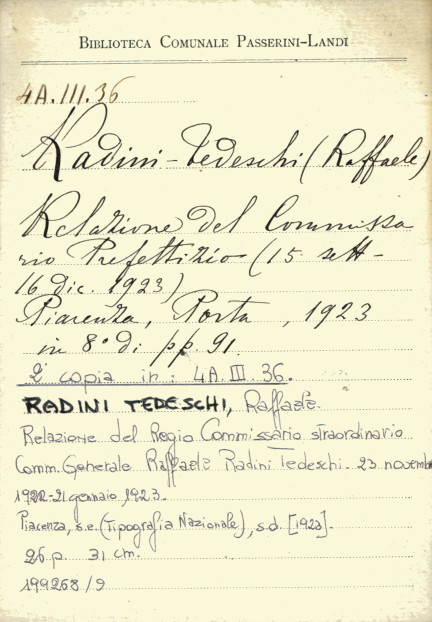 BIBLIOTECA COMUNALE PASSERINI-LANDI
4A.III.36
Radini-Tedeschi (Raffaele)
Relazione del Commissa
rio Prefettizio (15 sett-
16 dic. 1923)
Piacenza, Porta, 1923
in 8° di pp. 91.
2ª copia in: 4A.III.36.
RADINI TEDESCHI, Raffaele.
Relazione del Regio Commissario straordinario
Comm. Generale Raffaele Radini Tedeschi. 23 novemb
1922-21 gennaio 1923.
Piacenza, s.e. (Tipografia Nazionale), s.d. [1923].
26 p. 31 cm.
199268/9